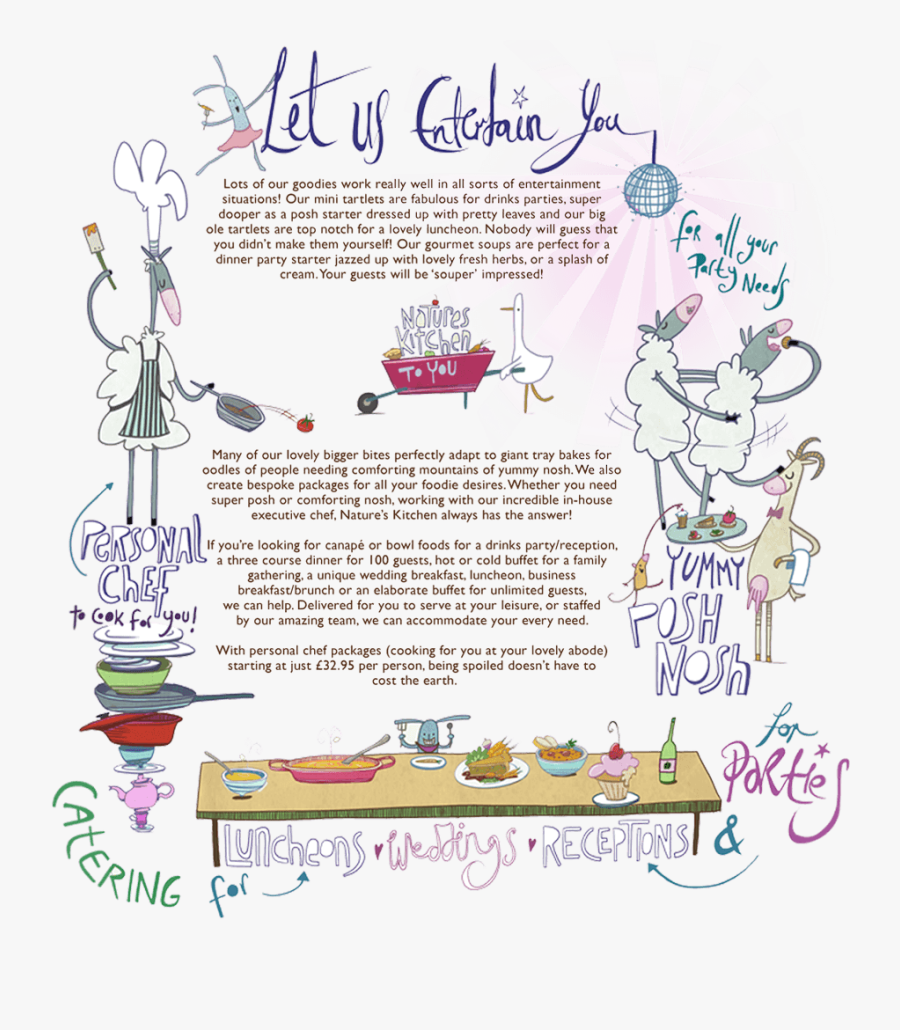 Let us Entertain You
Lots of our goodies work really well in all sorts of entertainment
situations! Our mini tartlets are fabulous for drinks parties, super
dooper as a posh starter dressed up with pretty leaves and our big
ole tartlets are top notch for a lovely luncheon. Nobody will guess that
you didn't make them yourself! Our gourmet soups are perfect for a
dinner party starter jazzed up with lovely fresh herbs, or a splash of
cream. Your guests will be 'souper' impressed!
for all your
Party Needs
Natures
Kitchen
To You
Many of our lovely bigger bites perfectly adapt to giant tray bakes for
oodles of people needing comforting mountains of yummy nosh. We also
create bespoke packages for all your foodie desires. Whether you need
super posh or comforting nosh, working with our incredible in-house
executive chef, Nature's Kitchen always has the answer!
Personal
Chef
to cook for you!
If you're looking for canapé or bowl foods for a drinks party/reception,
a three course dinner for 100 guests, hot or cold buffet for a family
gathering, a unique wedding breakfast, luncheon, business
breakfast/brunch or an elaborate buffet for unlimited guests,
we can help. Delivered for you to serve at your leisure, or staffed
by our amazing team, we can accommodate your every need.
Yummy
Posh
Nosh
With personal chef packages (cooking for you at your lovely abode)
starting at just £32.95 per person, being spoiled doesn't have to
cost the earth.
Catering
for
Luncheons ♥ Weddings ♥ Receptions &
for
Parties